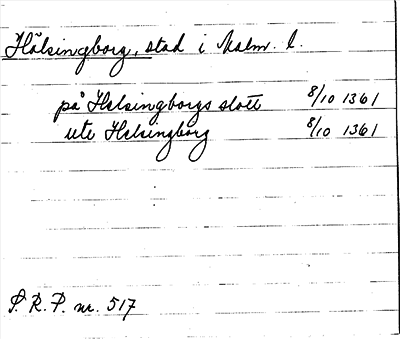 Hälsingborg, stad i Malm. l.
på Helsingborgs slott 8/10 1361
ute Helsingborg 8/10 1361
S. R. P. nr. 517